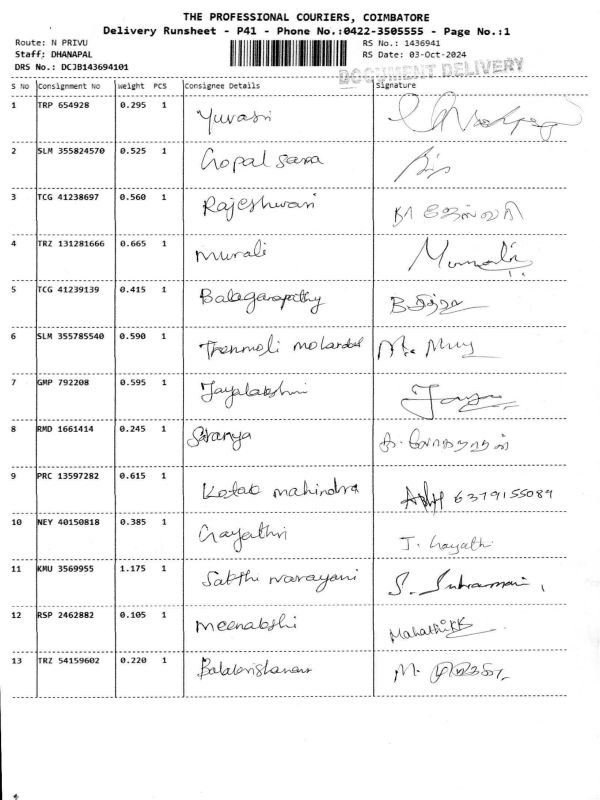 THE PROFESSIONAL COURIERS, COIMBATORE
Delivery Runsheet - P41 - Phone No.:0422-3505555 - Page No.:1
Route: N PRIVU RS No.: 1436941
Staff: DHANAPAL RS Date: 03-Oct-2024
DRS No.: DCJB143694101
DOCUMENT DELIVERY
S No Consignment No Weight PCS Consignee Details Signature
1 TRP 654928 0.295 1 Yuvasri
2 SLM 355824570 0.525 1 Gopal sana
3 TCG 41238697 0.560 1 Rajeshwari
4 TRZ 131281666 0.665 1 murali
5 TCG 41239139 0.415 1 Balaganapathy
6 SLM 355785540 0.590 1
7 GMP 792208 0.595 1 Jayalakshmi
8 RMD 1661414 0.245 1 Saranya
9 PRC 13597282 0.615 1 Kotak mahindra 6379155089
10 NEY 40150818 0.385 1 Gayathri J. Gayathi
11 KMU 3569955 1.175 1 Sakthi narayani S. Subramani
12 RSP 2462882 0.105 1 meenakshi Mahathi KK
13 TRZ 54159602 0.220 1 Balakrishanan